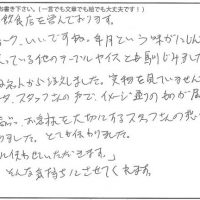 お書き下さい。(一言でも文章でも絵でも大丈夫です!)
飲食店を営んでおります。
ーク、いいですね。年月という味がにじん
っている他のテーブルやイスとも馴じみました
ネットから伝えました。実物を見ていません
、スタッフさんの声で、イメージ通りの物が届
、お客様を大切にするスタッフさんの
ました。とても伝わりました。
使わせていただきます。」
そんな気持ちにさせてくれます。